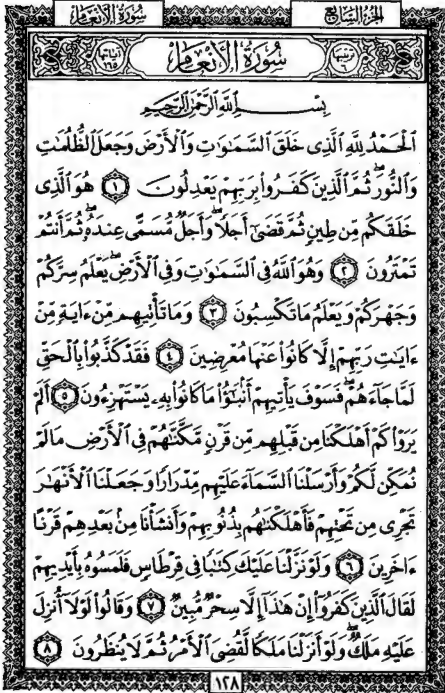 الجزء السابع
سورة الأنعام
ترتيبها ٦
سُورَةُ الْأَنْعَامِ
آياتها ١٦٥
بِسْمِ اللَّهِ الرَّحْمَٰنِ الرَّحِيمِ
ٱلْحَمْدُ لِلَّهِ ٱلَّذِى خَلَقَ ٱلسَّمَٰوَٰتِ وَٱلْأَرْضَ وَجَعَلَ ٱلظُّلُمَٰتِ
وَٱلنُّورَ ۖ ثُمَّ ٱلَّذِينَ كَفَرُوا۟ بِرَبِّهِمْ يَعْدِلُونَ ١ هُوَ ٱلَّذِى
خَلَقَكُم مِّن طِينٍ ثُمَّ قَضَىٰٓ أَجَلًا ۖ وَأَجَلٌ مُّسَمًّى عِندَهُۥ ۖ ثُمَّ أَنتُمْ
تَمْتَرُونَ ٢ وَهُوَ ٱللَّهُ فِى ٱلسَّمَٰوَٰتِ وَفِى ٱلْأَرْضِ ۖ يَعْلَمُ سِرَّكُمْ
وَجَهْرَكُمْ وَيَعْلَمُ مَا تَكْسِبُونَ ٣ وَمَا تَأْتِيهِم مِّنْ ءَايَةٍ مِّنْ
ءَايَٰتِ رَبِّهِمْ إِلَّا كَانُوا۟ عَنْهَا مُعْرِضِينَ ٤ فَقَدْ كَذَّبُوا۟ بِٱلْحَقِّ
لَمَّا جَآءَهُمْ ۖ فَسَوْفَ يَأْتِيهِمْ أَنۢبَٰٓؤُا۟ مَا كَانُوا۟ بِهِۦ يَسْتَهْزِءُونَ ٥ أَلَمْ
يَرَوْا۟ كَمْ أَهْلَكْنَا مِن قَبْلِهِم مِّن قَرْنٍ مَّكَّنَّٰهُمْ فِى ٱلْأَرْضِ مَا لَمْ
نُمَكِّن لَّكُمْ وَأَرْسَلْنَا ٱلسَّمَآءَ عَلَيْهِم مِّدْرَارًا وَجَعَلْنَا ٱلْأَنْهَٰرَ
تَجْرِى مِن تَحْتِهِمْ فَأَهْلَكْنَٰهُم بِذُنُوبِهِمْ وَأَنشَأْنَا مِنۢ بَعْدِهِمْ قَرْنًا
ءَاخَرِينَ ٦ وَلَوْ نَزَّلْنَا عَلَيْكَ كِتَٰبًا فِى قِرْطَاسٍ فَلَمَسُوهُ بِأَيْدِيهِمْ
لَقَالَ ٱلَّذِينَ كَفَرُوٓا۟ إِنْ هَٰذَآ إِلَّا سِحْرٌ مُّبِينٌ ٧ وَقَالُوا۟ لَوْلَآ أُنزِلَ
عَلَيْهِ مَلَكٌ ۖ وَلَوْ أَنزَلْنَا مَلَكًا لَّقُضِىَ ٱلْأَمْرُ ثُمَّ لَا يُنظَرُونَ ٨
١٢٨